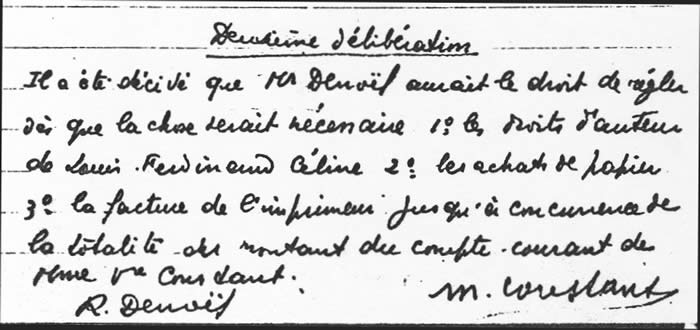 Deuxième délibération
Il a été décidé que Mr Denoël aurait le droit de régler
dès que la chose serait nécessaire 1º les droits d'auteur
de Louis-Ferdinand Céline 2º les achats de papier
3º la facture de l'imprimeur jusqu'à concurrence de
la totalité du montant du compte-courant de
Mme Vve Constant.
R. Denoël M. Constant